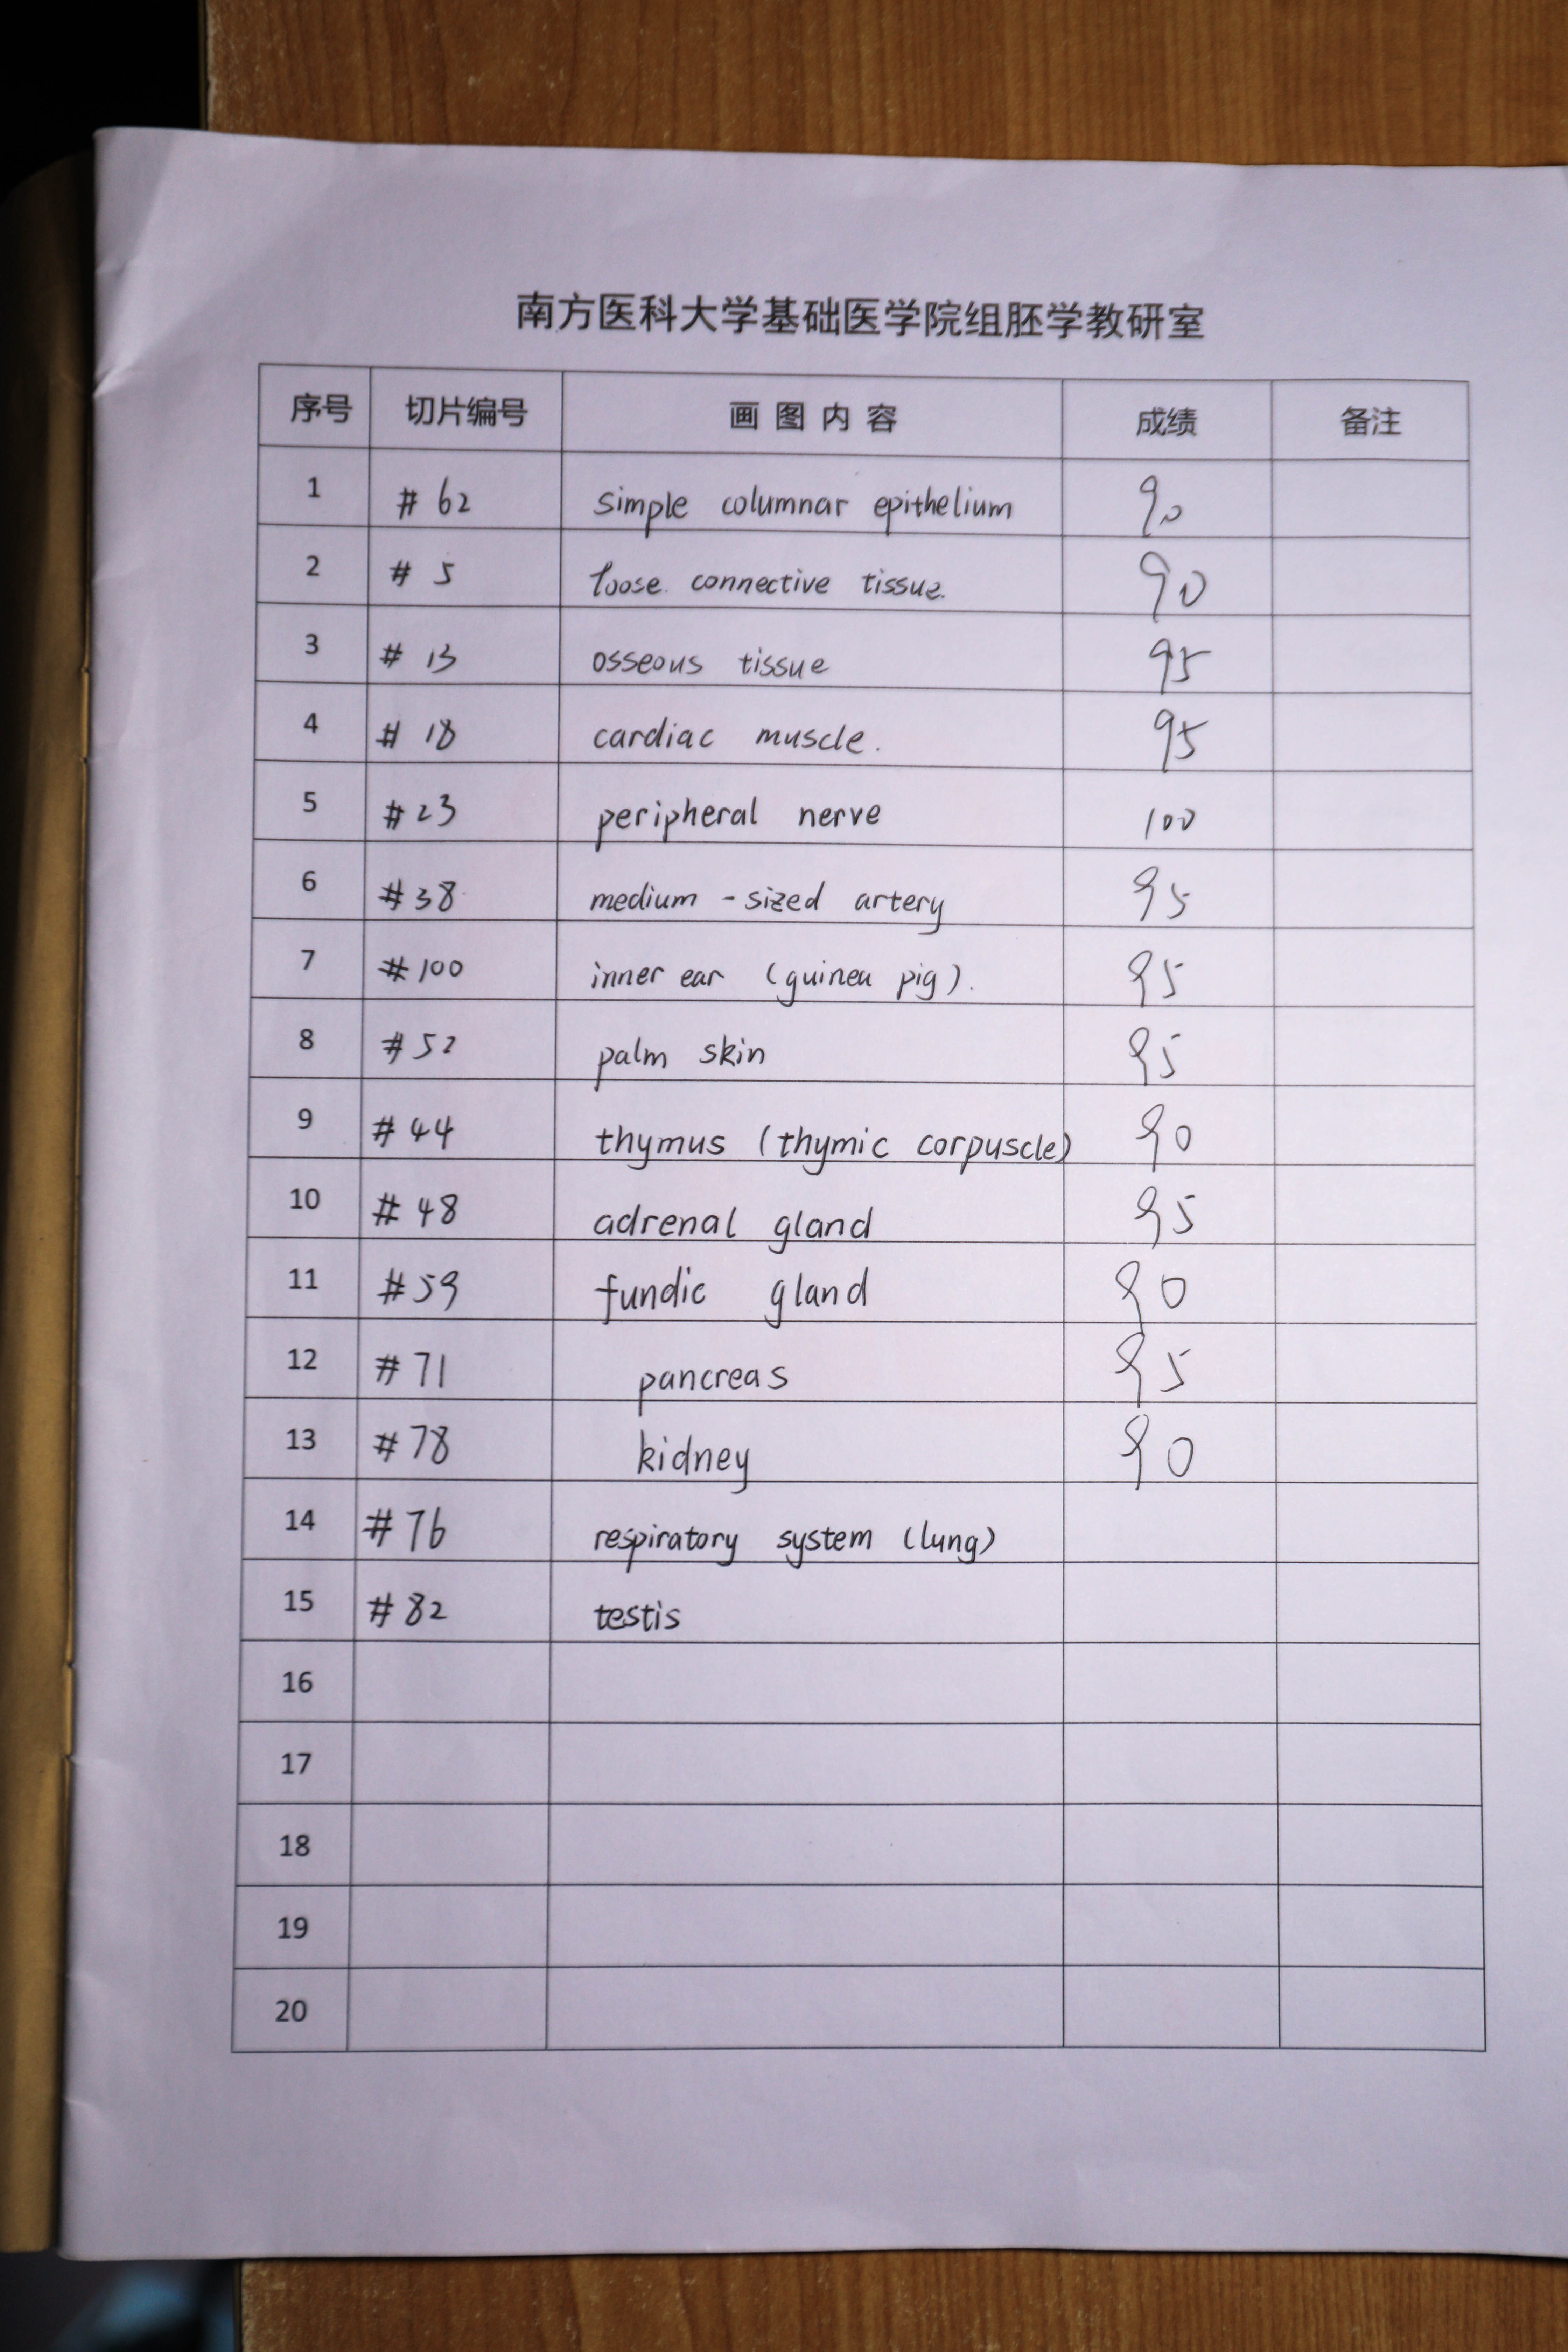 南方医科大学基础医学院组胚学教研室
序号 切片编号 画图内容 成绩 备注
1 # 62 simple columnar epithelium 90
2 # 5 loose connective tissue. 90
3 # 13 osseous tissue 95
4 # 18 cardiac muscle. 95
5 #23 peripheral nerve 100
6 #38 medium-sized artery 95
7 #100 inner ear (guinea pig). 95
8 #52 palm skin 95
9 #44 thymus (thymic corpuscle) 90
10 #48 adrenal gland 95
11 #59 fundic gland 90
12 #71 pancreas 95
13 #78 kidney 90
14 #76 respiratory system (lung)
15 #82 testis
16
17
18
19
20